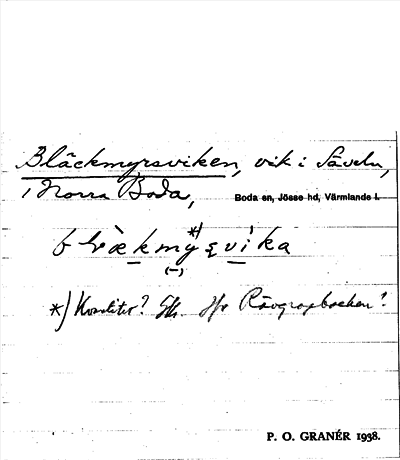 Bläckmyrsviken, vik i Säveln,
i Norra Boda,
Boda sn, Jösse hd, Värmlands l.
*) Kvantitet? Jfr Rävgropbacken!
P. O. GRANÉR 1938.